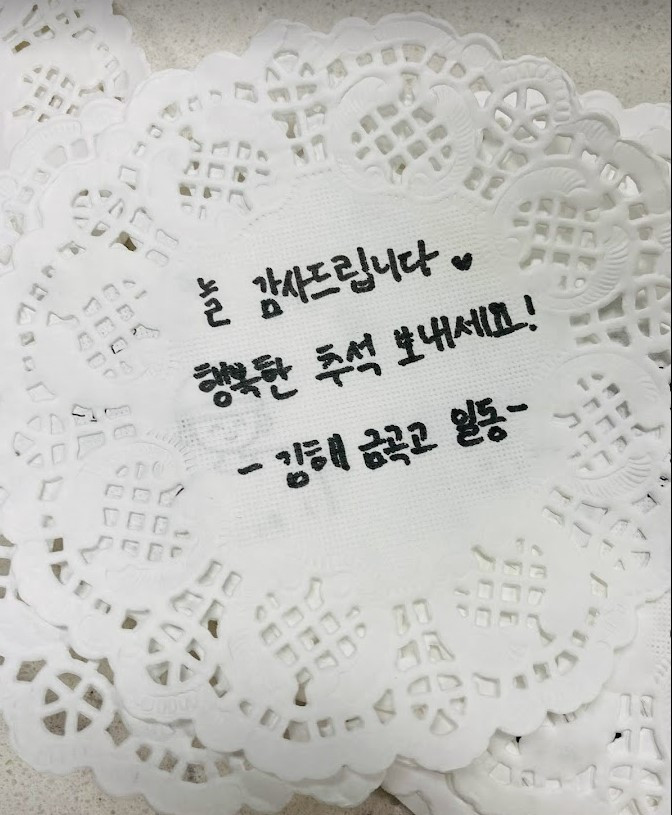 늘 감사드립니다 ♥
행복한 추석 보내세요!
- 김해 금곡고 일동-